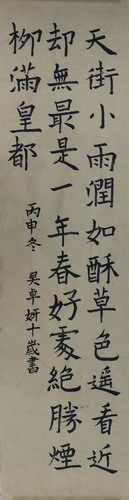 天街小雨潤如酥草色遙看近
却無最是一年春好處絕勝煙
柳滿皇都
丙申冬 吴卓妍十歲書